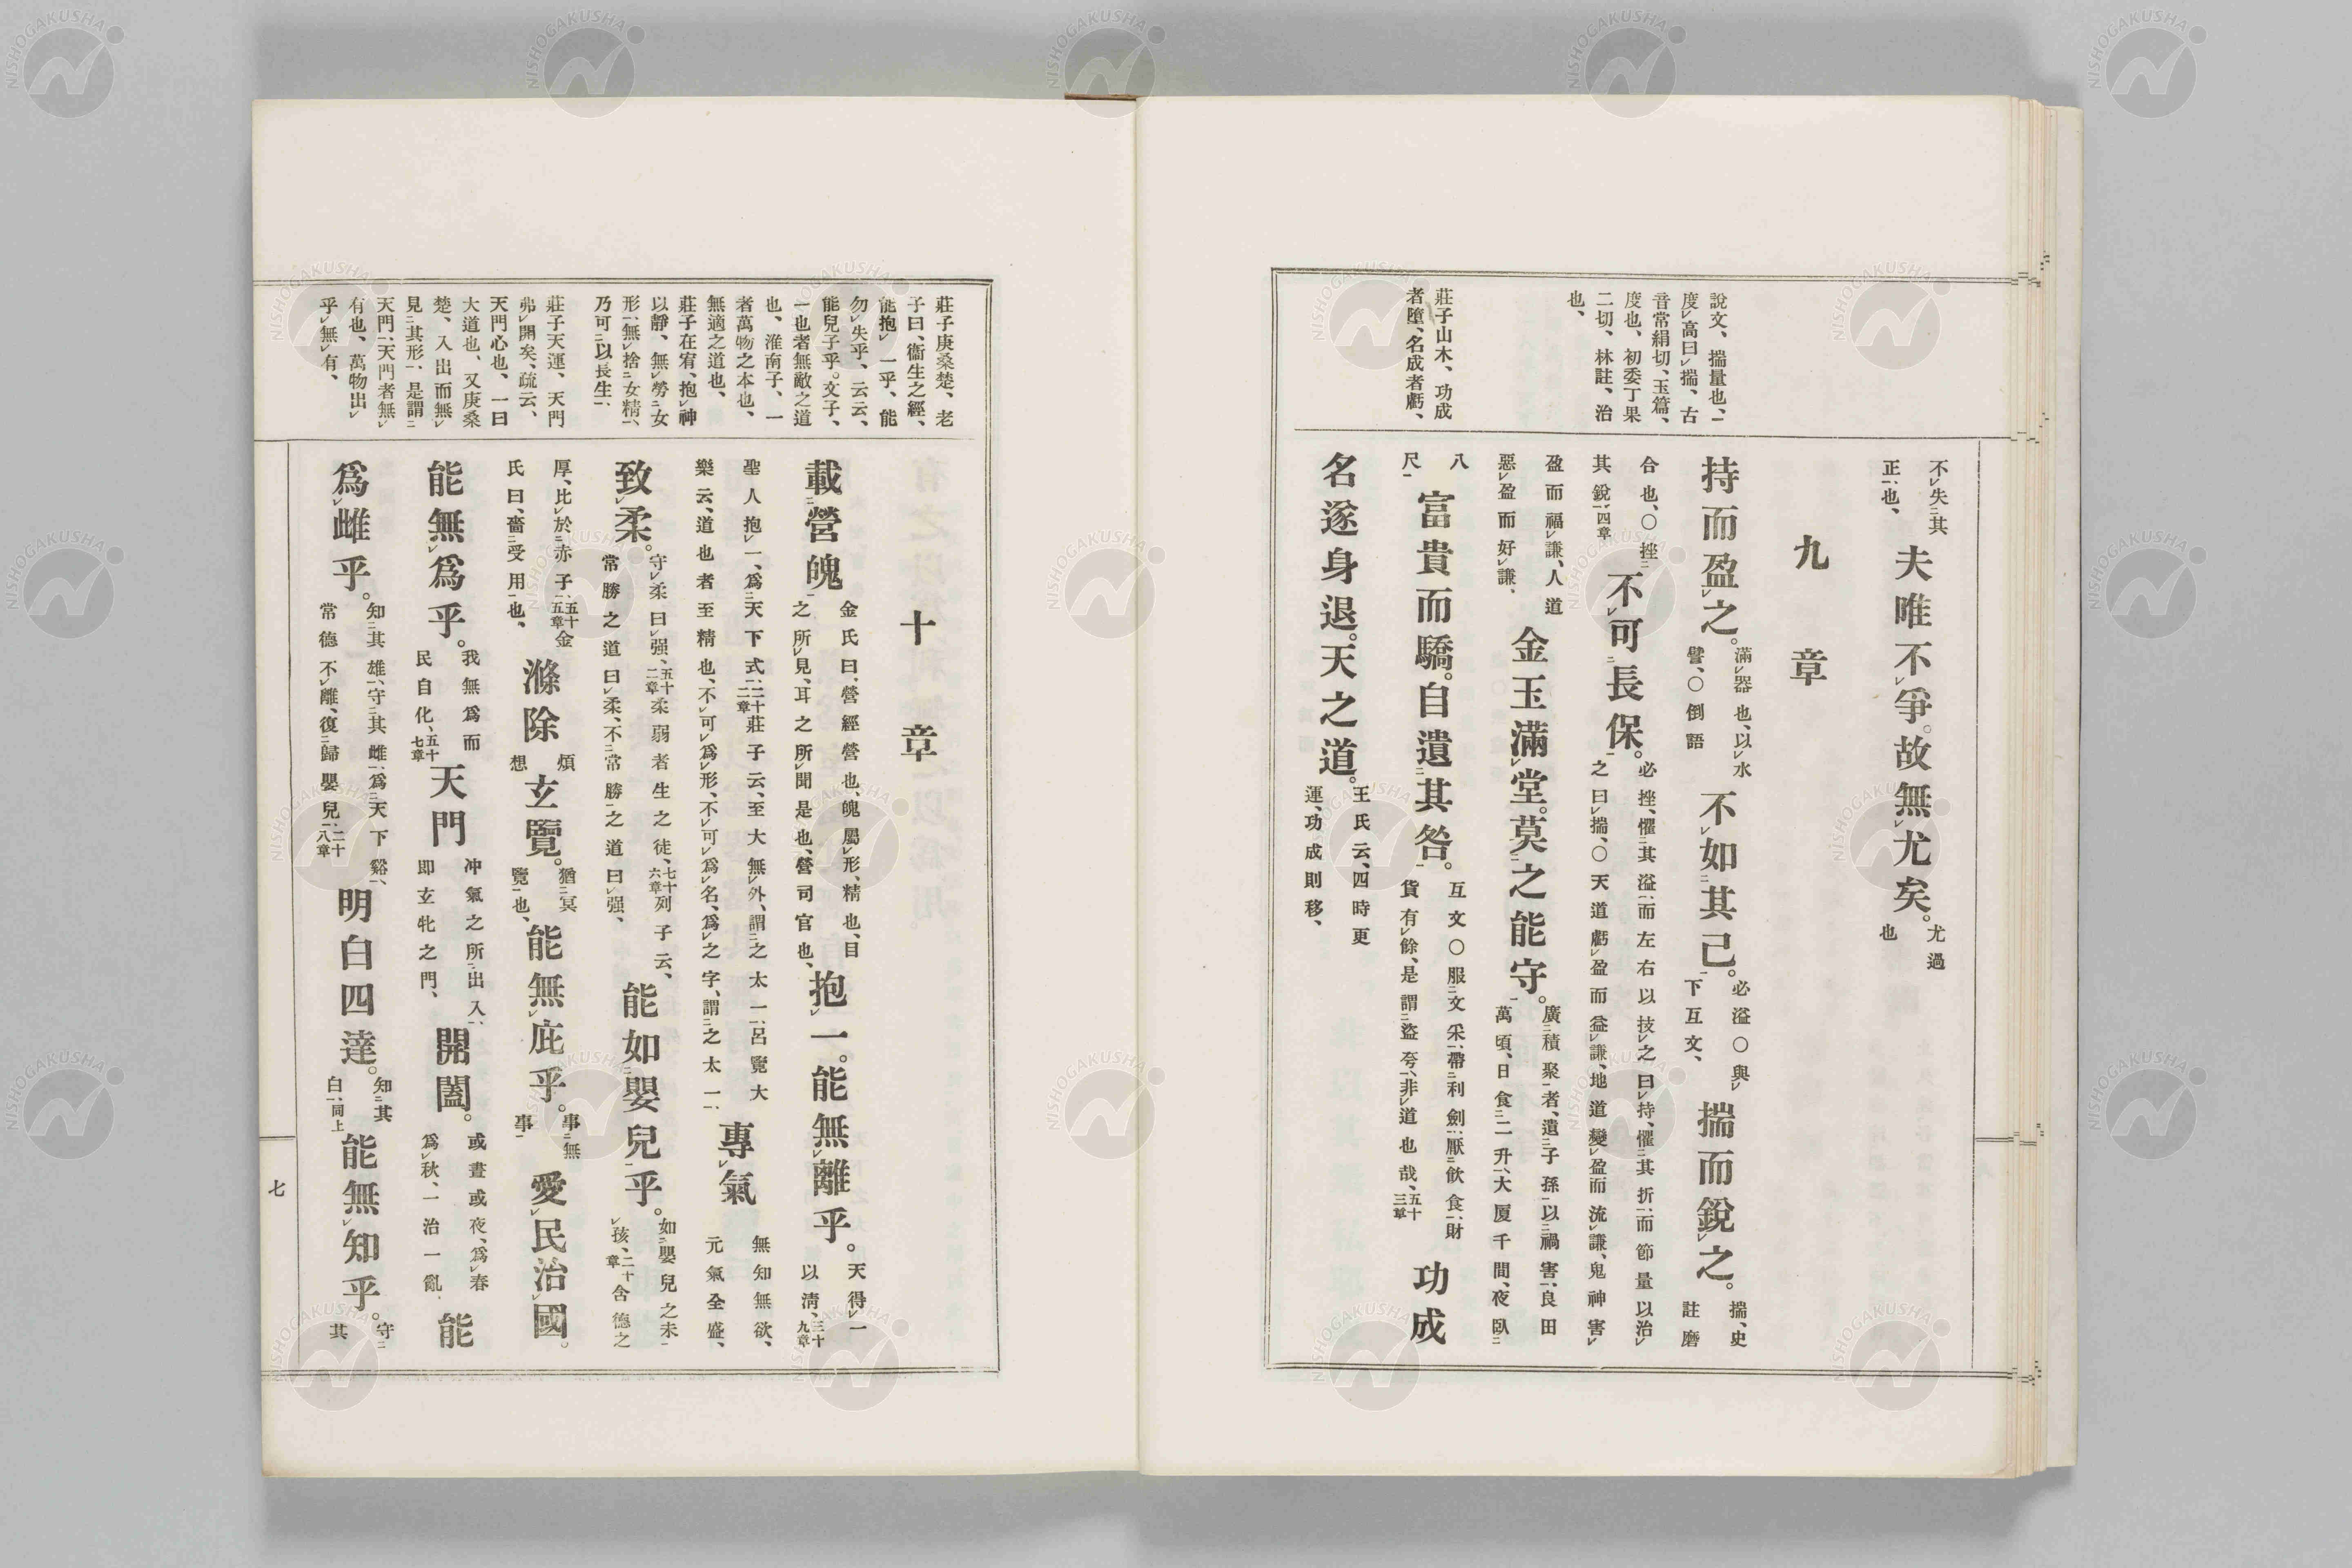 說文、揣量也、一
度高曰揣、古
音常絹切、玉篇、
度也、初委丁果
二切、林註、治
也、
莊子山木、功成
者墮、名成者虧、
不失其正也、夫唯不爭。故無尤矣。尤過也
九章
持而盈之。滿器也、以水譬、○倒語不如其己。必溢○與下互文、揣而銳之。揣、史註磨
合也、○挫其銳、四章不可長保。必挫、懼其溢、而左右以技之曰持、懼其折、而節量以治之曰揣、○天道虧盈而益謙、地道變盈而流謙、鬼神害
盈而福謙、人道惡盈而好謙、金玉滿堂。莫之能守。廣積聚者、遺子孫以禍害、良田萬頃、日食二升、大厦千間、夜臥
八尺富貴而驕。自遺其咎。互文○服文采、帶利劍、厭飮食、財貨有餘、是謂盜夸、非道也哉、五十三章功成
名遂身退。天之道。王氏云、四時更運、功成則移、
莊子庚桑楚、老
子曰、衞生之經、
能抱一乎、能
勿失乎、云云、
能兒子乎。文子、
一也者無敵之道
也、淮南子、一
者萬物之本也、
無適之道也、
莊子在宥、抱神
以靜、無勞女
形、無捨女精、
乃可以長生、
莊子天運、天門
弗開矣、疏云、
天門心也、一曰
大道也、又庚桑
楚、入出而無
見其形、是謂
天門、天門者無
有也、萬物出
乎無有、
十章
載營魄金氏曰、營經營也、魄屬形、精也、目之所見、耳之所聞是也、營司官也、抱一。能無離乎。天得一以淸、三十九章
聖人抱一、爲天下式、二十二章莊子云、至大無外、謂之太一、呂覽大樂云、道也者至精也、不可爲形、不可爲名、爲之字、謂之太一、專氣無知無欲、元氣全盛、
致柔。守柔曰强、五十二章柔弱者生之徒、七十六章列子云、常勝之道曰柔、不常勝之道曰强、能如嬰兒乎。如嬰兒之未孩、二十章含德之
厚、比於赤子、五十五章金氏曰、嗇受用也、滌除煩想玄覽。猶冥覽也、能無庇乎。事無事愛民治國。
能無爲乎。我無爲而民自化、五十七章天門冲氣之所出入、即玄牝之門、開闔。或晝或夜、爲春爲秋、一治一亂、能
爲雌乎。知其雄、守其雌、爲天下谿、常德不離、復歸嬰兒、二十八章明白四達。知其白、同上能無知乎。守其
七
NISHOGAKUSHA